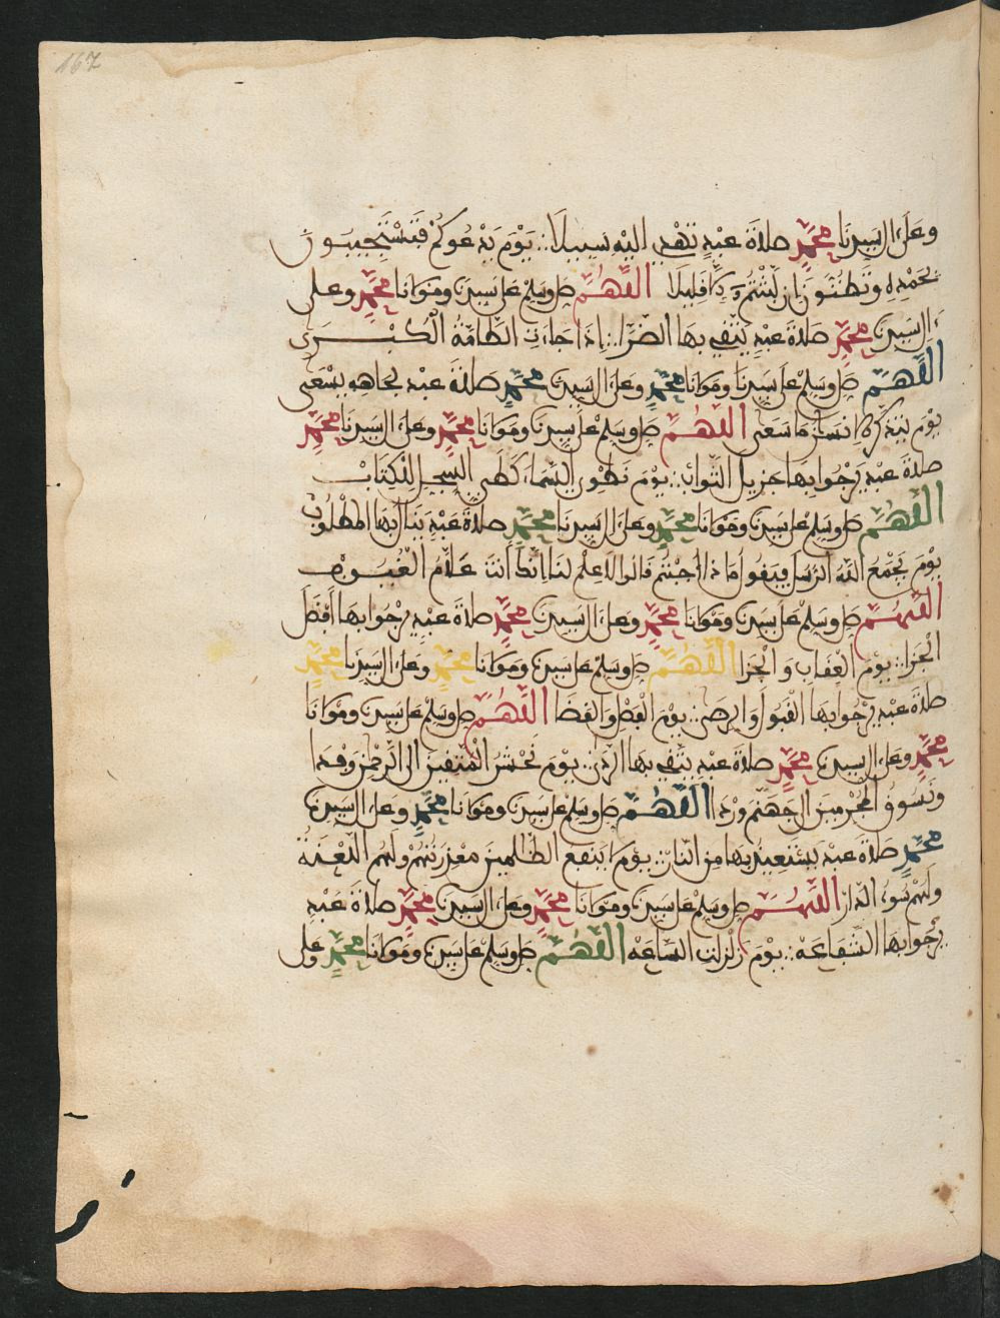 167
وعلى ءال سيدنا محمد صلاة عبد تهدي اليه سبيلا يوم يدعوكم فتستجيبون
بحمده وتظنون ان لبثتم الا قليلا اللهم صل وسلم على سيدنا ومولانا محمد وعلى
ءال سيدنا محمد صلاة عبد يتقي بها الضرا اذا جاءت الطامة الكبرى
اللهم صل وسلم على سيدنا ومولانا محمد وعلى ءال سيدنا محمد صلاة عبد بجاهه يسعى
يوم يتذكر الانسان ما سعى اللهم صل وسلم على سيدنا ومولانا محمد وعلى ءال سيدنا محمد
صلاة عبد يرجوا بها جزيل الثواب يوم نطوي السماء كطي السجل للكتاب
اللهم صل وسلم على سيدنا ومولانا محمد وعلى ءال سيدنا محمد صلاة عبد ينال بها المطلوب
يوم يجمع الله الرسل فيقول ماذا أجبتم قالوا لا علم لنا انك أنت علام الغيوب
اللهم صل وسلم على سيدنا ومولانا محمد وعلى ءال سيدنا محمد صلاة عبد يرجوا بها أفضل
الجزا يوم العقاب والجزا اللهم صل وسلم على سيدنا ومولانا محمد وعلى ءال سيدنا محمد
صلاة عبد يرجوا بها القبول والرضى يوم الفصل والقضا اللهم صل وسلم على سيدنا ومولانا
محمد وعلى ءال سيدنا محمد صلاة عبد يتقي بها الردى يوم نحشر المتقين الى الرحمن وفدا
ونسوق المجرمين الى جهنم وردا اللهم صل وسلم على سيدنا ومولانا محمد وعلى ءال سيدنا
محمد صلاة عبد يستعيذ بها من النار يوم لا ينفع الظالمين معذرتهم ولهم اللعنة
ولهم سوء الدار اللهم صل وسلم على سيدنا ومولانا محمد وعلى ءال سيدنا محمد صلاة عبد
يرجوا بها الشفاعة يوم زلزلت الساعة اللهم صل وسلم على سيدنا ومولانا محمد وعلى